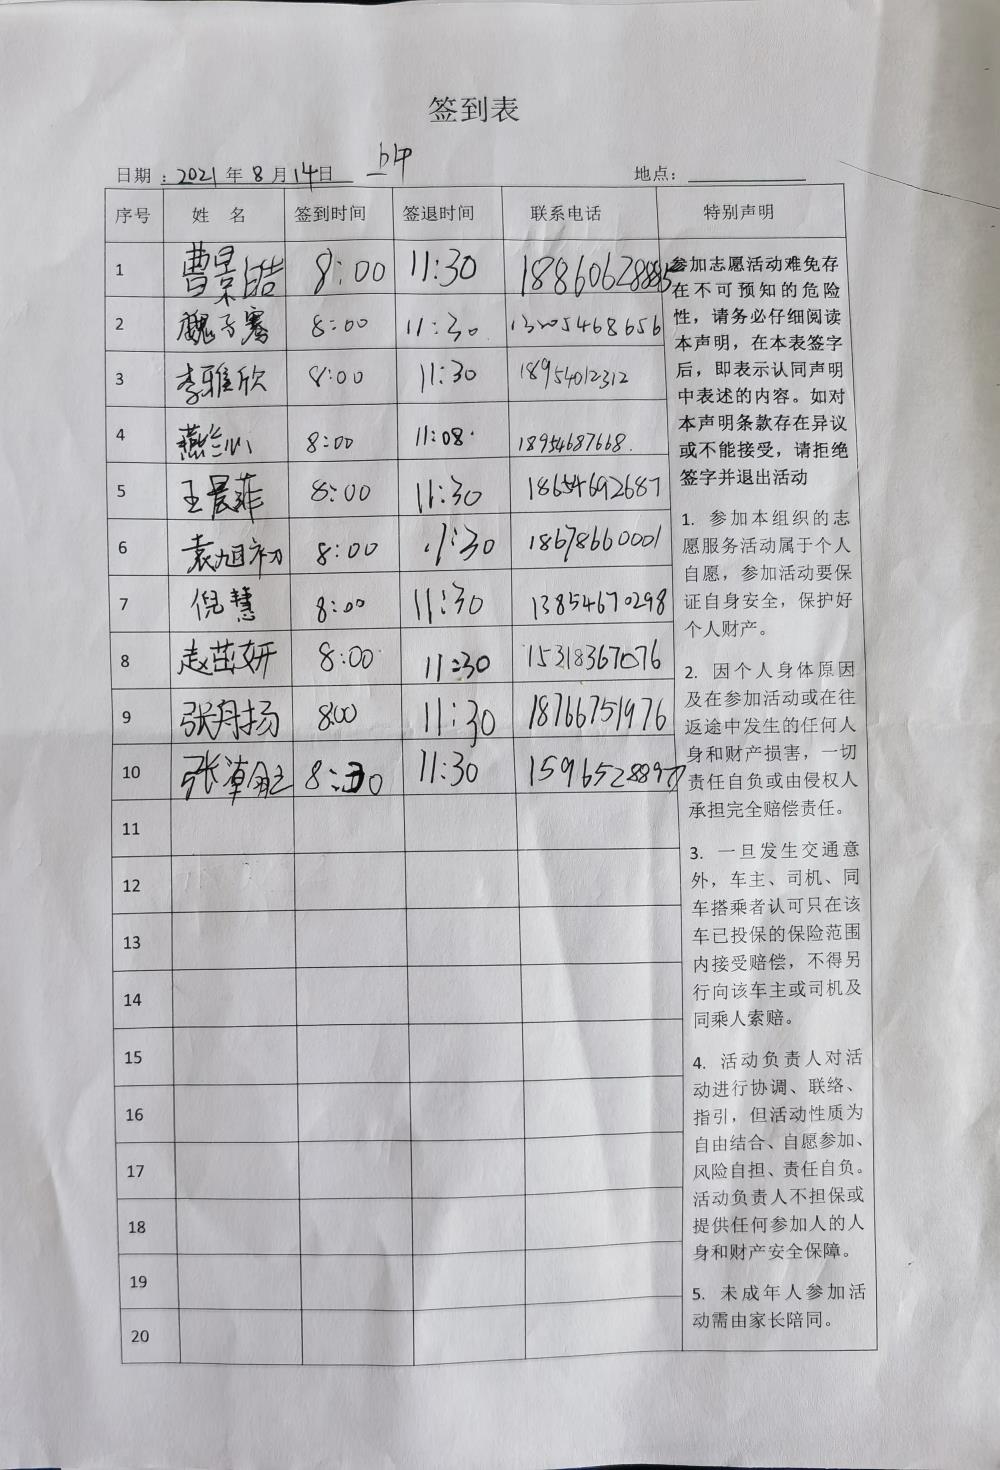 签到表
日期：2021年8月14日 上午
地点：
序号 姓 名 签到时间 签退时间 联系电话 特别声明
1 曹景皓 8:00 11:30
2 魏子骞 8:00 11:30 13205468656
3 李雅欣 8:00 11:30 18954012312
4 8:00 11:08 18954687668
5 王晨菲 8:00 11:30 18654692687
6 袁旭初 8:00 11:30 18678660001
7 倪慧 8:00 11:30 13854670298
8 赵茁妍 8:00 11:30 15318367076
9 张舟扬 8:00 11:30 18766751976
10 11:30
11
12
13
14
15
16
17
18
19
20
参加志愿活动难免存
在不可预知的危险
性，请务必仔细阅读
本声明，在本表签字
后，即表示认同声明
中表述的内容。如对
本声明条款存在异议
或不能接受，请拒绝
签字并退出活动
1. 参加本组织的志
愿服务活动属于个人
自愿，参加活动要保
证自身安全，保护好
个人财产。
2. 因个人身体原因
及在参加活动或在往
返途中发生的任何人
身和财产损害，一切
责任自负或由侵权人
承担完全赔偿责任。
3. 一旦发生交通意
外，车主、司机、同
车搭乘者认可只在该
车已投保的保险范围
内接受赔偿，不得另
行向该车主或司机及
同乘人索赔。
4. 活动负责人对活
动进行协调、联络、
指引，但活动性质为
自由结合、自愿参加、
风险自担、责任自负。
活动负责人不担保或
提供任何参加人的人
身和财产安全保障。
5. 未成年人参加活
动需由家长陪同。